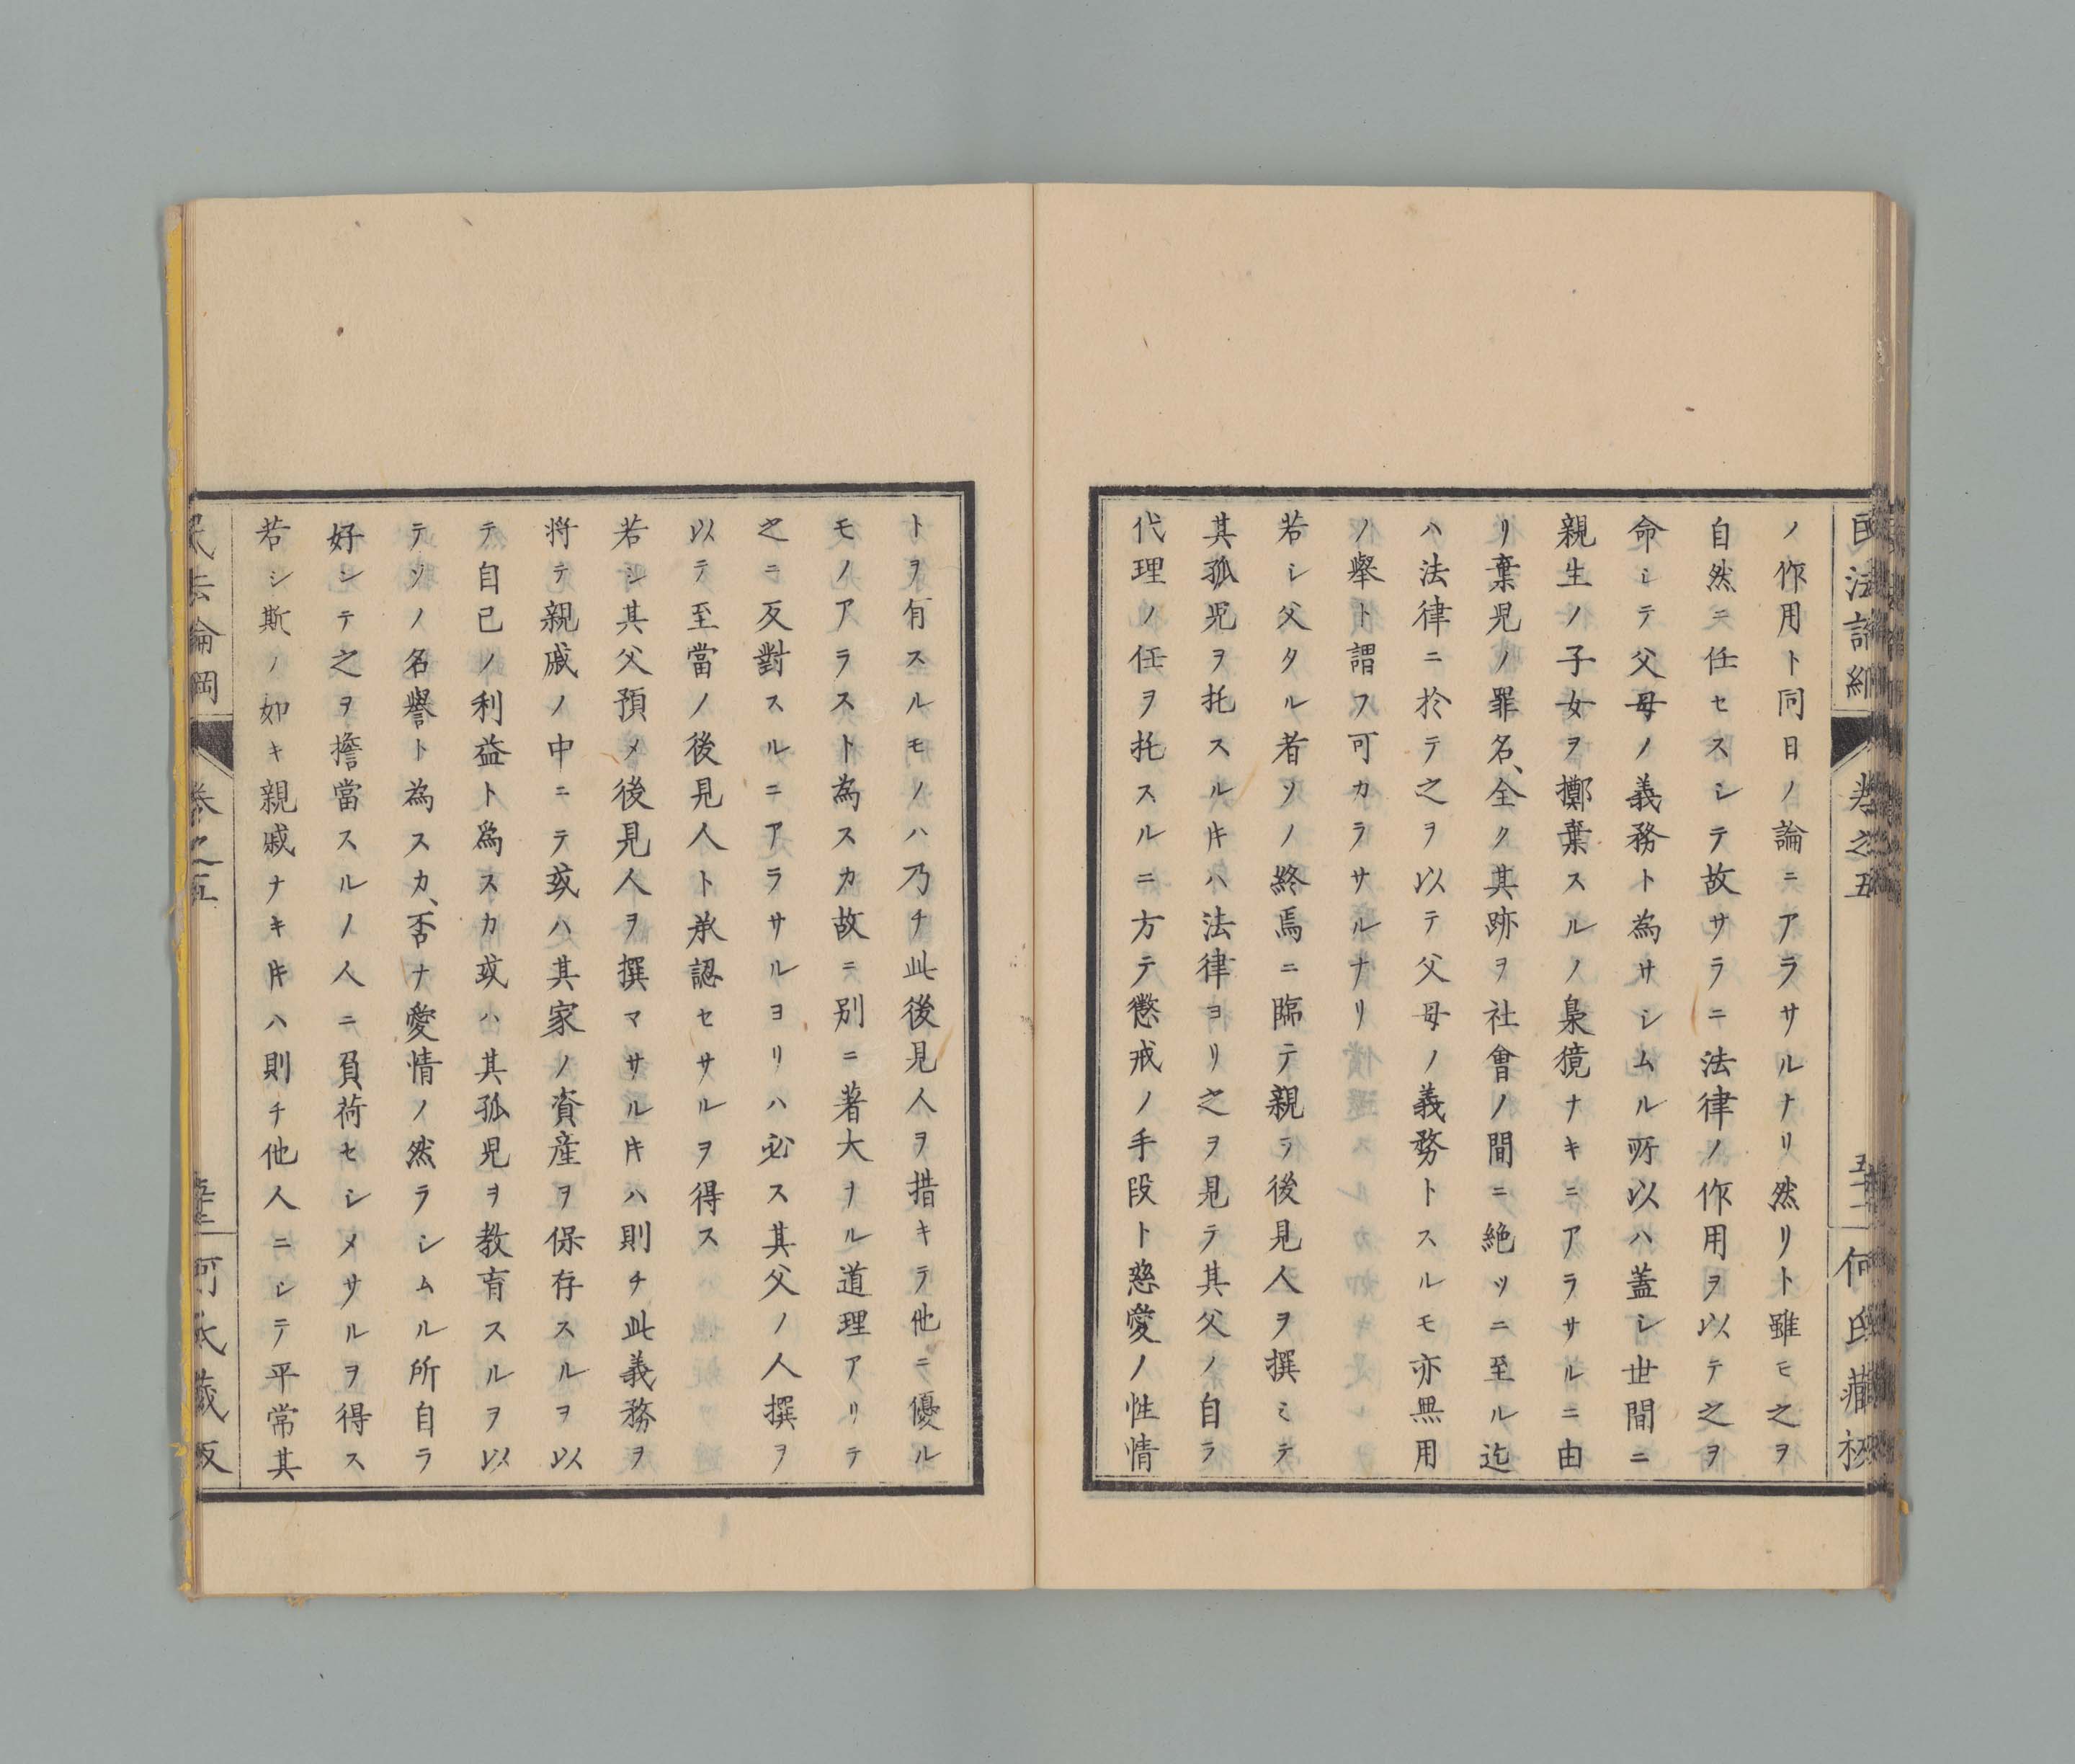 民法論綱 卷之五 五十二 何氏藏板
ノ作用ト同日ノ論ニアラサルナリ然リト雖モ之ヲ
自然ニ任セスシテ故サラニ法律ノ作用ヲ以テ之ヲ
命シテ父母ノ義務ト為サシムル所以ハ蓋シ世間ニ
親生ノ子女ヲ擲棄スルノ梟獍ナキニアラサルニ由
リ棄児ノ罪名、全ク其跡ヲ社會ノ間ニ絶ツニ至ル迄
ハ法律ニ於テ之ヲ以テ父母ノ義務トスルモ亦無用
ノ舉ト謂フ可カラサルナリ
若シ父タル者ソノ終焉ニ臨テ親ラ後見人ヲ撰ミテ
其孤児ヲ托スルㇳキハ法律ヨリ之ヲ見テ其父ノ自ラ
代理ノ任ヲ托スルニ方テ懲戒ノ手段ト慈愛ノ性情
トヲ有スルモノハ乃チ此後見人ヲ措キテ他ニ優ル
モノアラスト為スカ故ニ別ニ著大ナル道理アリテ
之ニ反對スルニアラサルヨリハ必ス其父ノ人撰ヲ
以テ至當ノ後見人ト承認セサルヲ得ス
若シ其父預メ後見人ヲ撰マサルㇳキハ則チ此義務ヲ
将テ親戚ノ中ニテ或ハ其家ノ資産ヲ保存スルヲ以
テ自己ノ利益ト為スカ或ハ其孤児ヲ教育スルヲ以
テソノ名譽ト為スカ、否ナ愛情ノ然ラシムル所自ラ
好シテ之ヲ擔當スルノ人ニ負荷セシメサルヲ得ス
若シ斯ノ如キ親戚ナキㇳキハ則チ他人ニシテ平常其
民法論綱 卷之五 何氏藏板